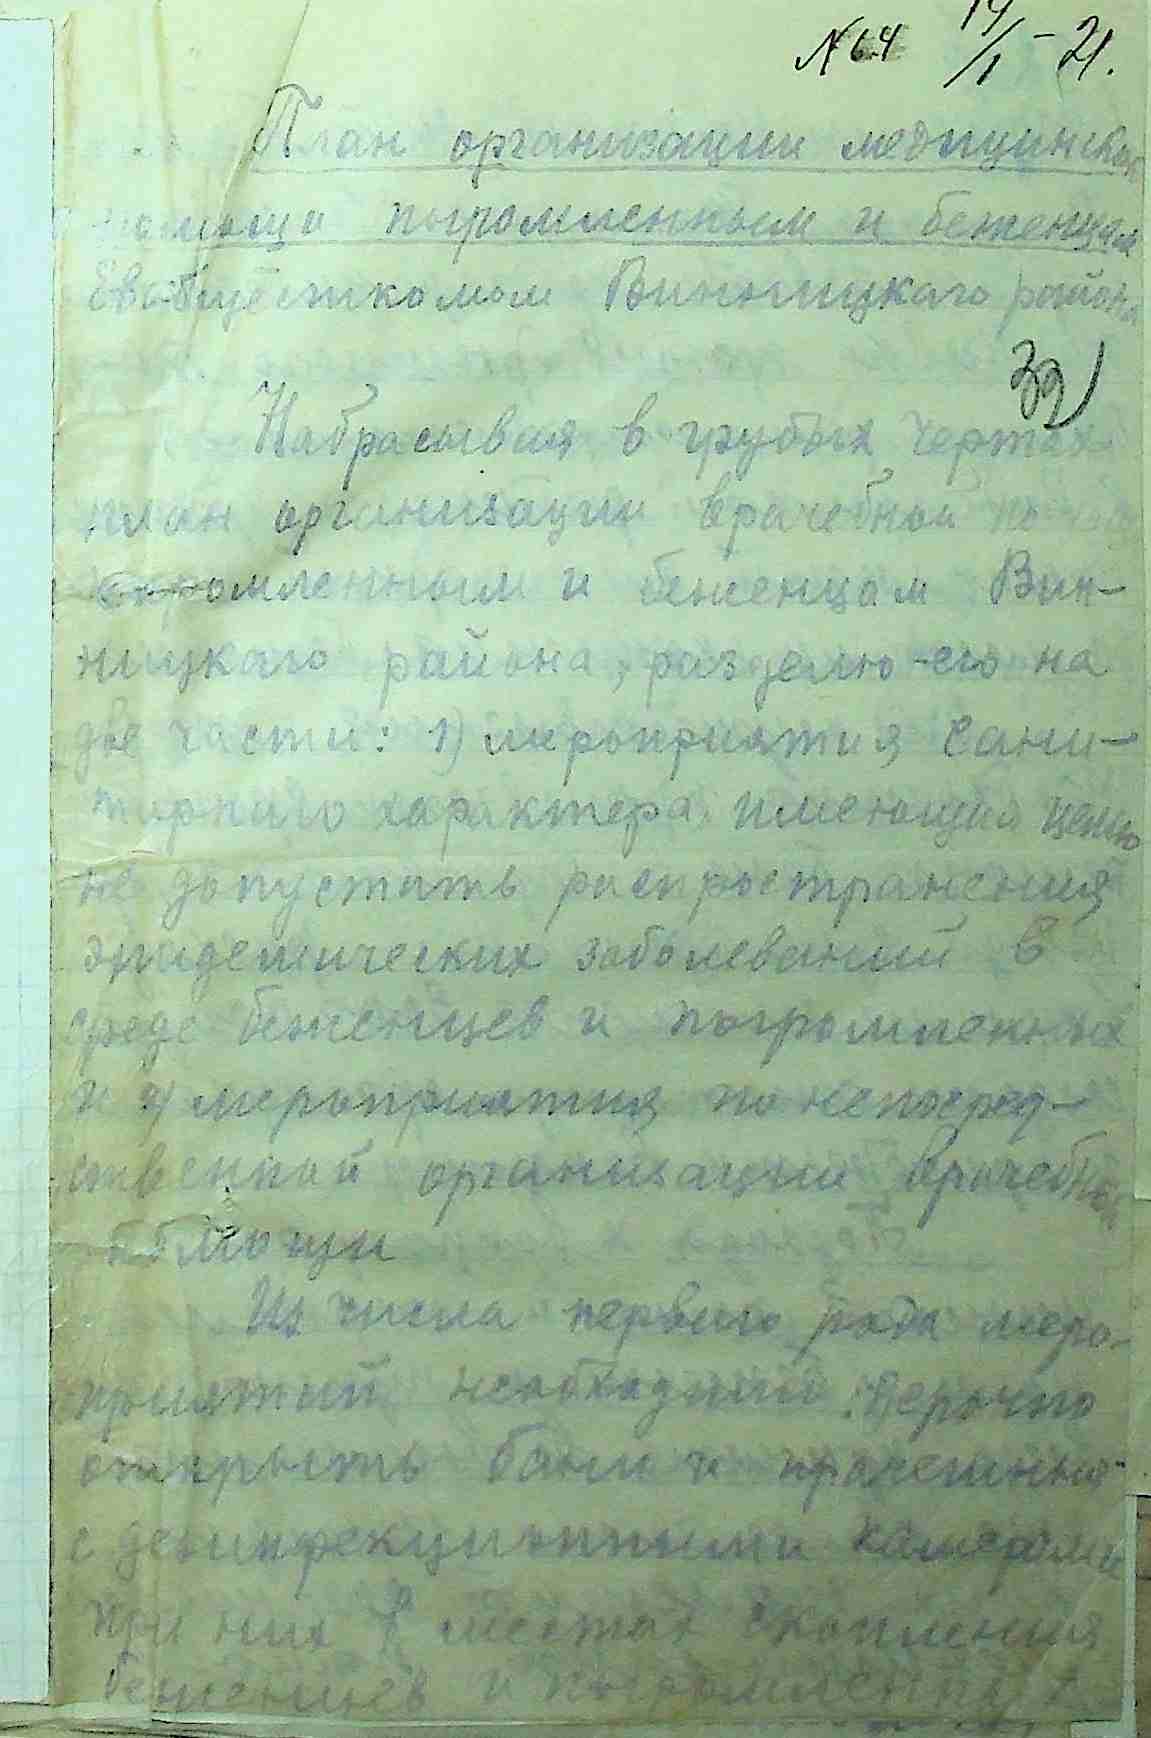 N 64 14/I - 21.
План организации медицинской
помощи погромленным и беженцам
Евобщесткомом Винницкаго района
32
Набрасывая в грубых чертах
план организации врачебной
погромленным и беженцам Вин-
ницкаго района, разделю его на
две части: 1) мероприятия сани-
тарнаго характера, имеющия целью
не допустить распространения
эпидемических заболеваний в
среде беженцев и погромленных
и 2) мероприятия по непосред-
ственной организации врачебной
помощи
Из числа перваго рода меро-
приятий необходимо: срочно
открыть бани и прачешныя
с дезинфекционными камерами
при них в местах скопления
беженцев и погромленных